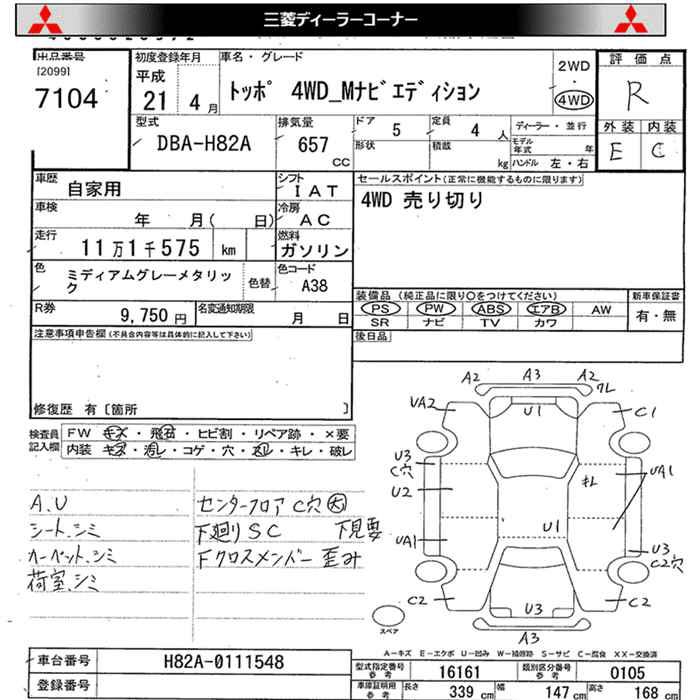 三菱ディーラーコーナー
出品番号
[2099]
7104
初度登録年月
平成
21 4 月
車名・グレード
トッポ 4WD_Mナビエディション
2WD
・
4WD
評価点
R
外装 内装
E C
型式
DBA-H82A
排気量
657
CC
ドア
5
形状
定員
4 人
積載
kg
ディーラー・並行
モデル年式 年
ハンドル 左・右
車歴
自家用
シフト
IAT
セールスポイント(正常に機能するものに限ります)
4WD 売り切り
車検
年 月( 日)
冷房
AC
走行
11万1千575 km
燃料
ガソリン
色
ミディアムグレーメタリック
色替
色コード
A38
装備品 (純正品に限り○をつけてください)
PS PW ABS エアB AW
SR ナビ TV カワ
新車保証書
有・無
R券
9,750 円
名変通知期限
月 日
後日品
注意事項申告欄(不具合内容等は具体的に記入して下さい)
修復歴 有〔箇所 〕
検査員記入欄
FW キズ・飛石・ヒビ割・リペア跡・×要
内装 キズ・汚レ・コゲ・穴・スレ・キレ・破レ
A.U
シート.シミ
カーペット.シミ
荷室.シミ
センターフロア C穴 大
下廻りSC 下見要
Fクロスメンバー歪み
A2 A3 A2
ワレ
UA2
U1
C1
U3
C穴
U2
UA1
キレ
UA1
U1
U3
C2穴
C2
U3
C2
A3
スペア
A-キズ E-エクボ U-凹み W-補修跡 S-サビ C-腐食 XX-交換済
車台番号
H82A-0111548
登録番号
型式指定番号
参考
16161
類別区分番号
参考
0105
車庫証明用
参考
長さ 339 cm
幅 147 cm
高さ 168 cm